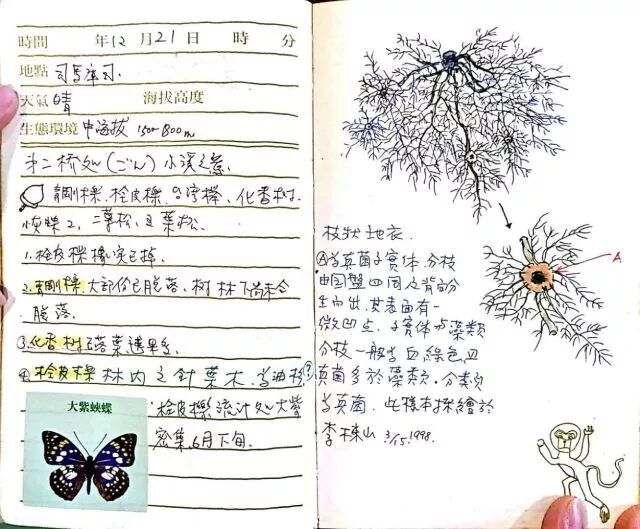 時間 年12月21日 時 分
地點 司馬庫司.
天氣 晴 海拔高度
生態環境 中海拔 1500~1800m
第二橋処 (ごん) 小溪之意
青剛櫟、栓皮櫟、台灣櫸、化香樹.
二葉松、五葉松.
1. 栓皮櫟橡実已掉.
2. 青剛櫟.大部份已脫落、樹林下尚未合
脫落.
③化香樹已落葉
④栓皮櫟林內之針葉木.為油杉
大紫蛺蝶
栓皮櫟流汁处大紫
密集.6月下旬.
枝狀地衣.
Ⓐ為真菌子實体.分枝
由圓盤四周之背部
生而出.其表面有一
微凹点.子實体与藻類
分枝一般為血綠色.且
真菌多於藻類.分素須
為真菌.此標本採繪於
李棟山 3/15.1998.
A